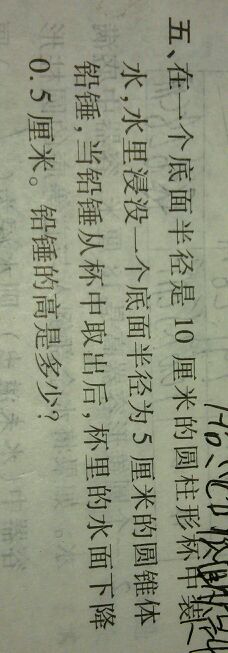 五、在一个底面半径是 10 厘米的圆柱形杯中装
水,水里浸没一个底面半径为 5 厘米的圆锥体
铅锤,当铅锤从杯中取出后,杯里的水面下降
0.5 厘米。铅锤的高是多少?